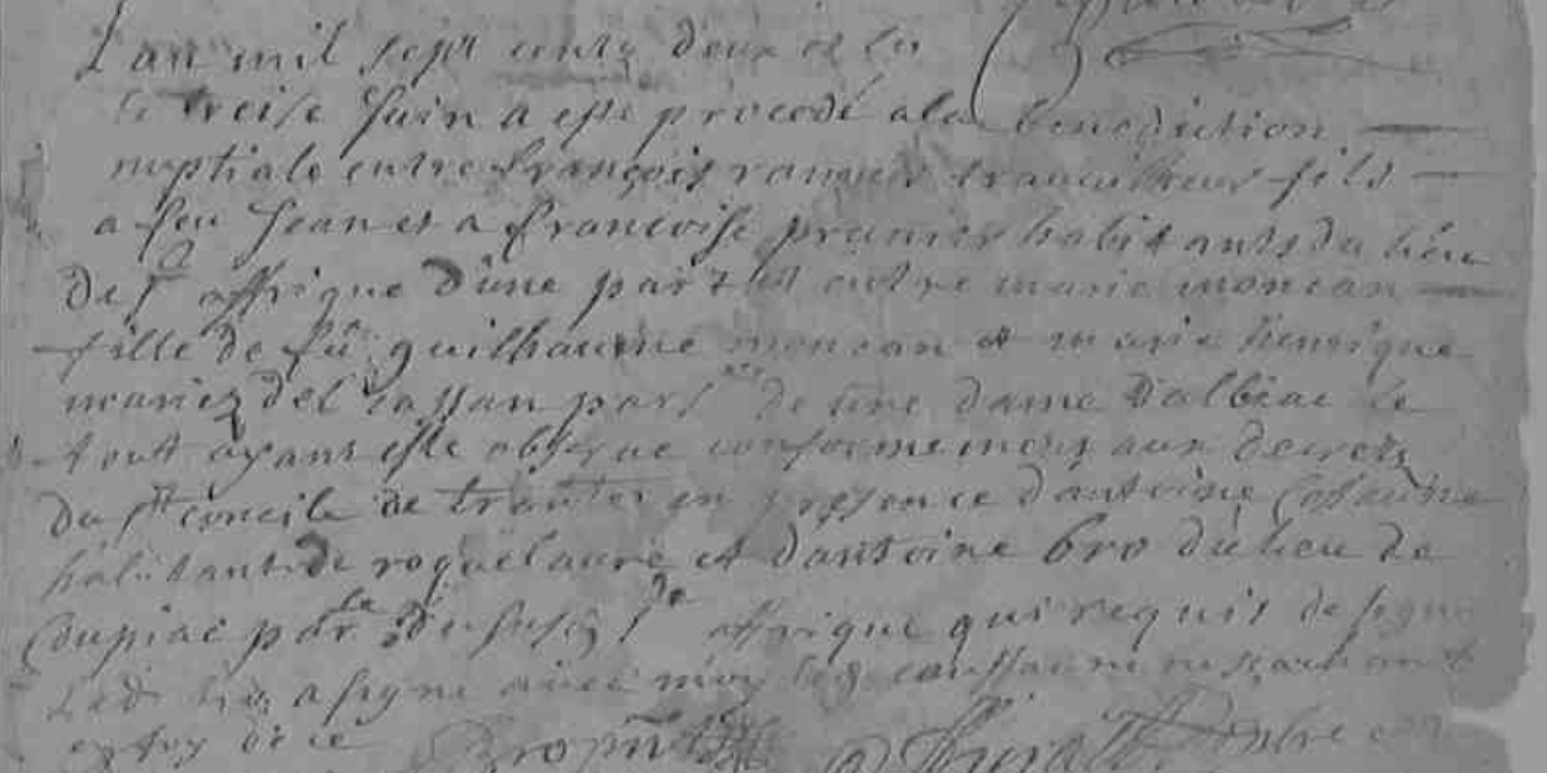 L'an mil sept cents deux et le
treise Juin a esté procedé a la benediction
nuptiale entre françois travailleur fils
a feu Jean et a francoise prunier habitants du lieu
de St affrique d'une part et entre marie moncan
fille de fû guilhaume moncan et marie henrique
mariez del cassan parsse de nne dame Dalbiac le
tout ayant esté observe conformement aux decrets
du st concile de trante en presence d'antoine Coss
habitant de roquelaure et d'antoine bro du lieu de
Coupiac parle dudit St affrique qui requis de signe
Led bro a signe avec moy led
en foy de ce Bro pnt